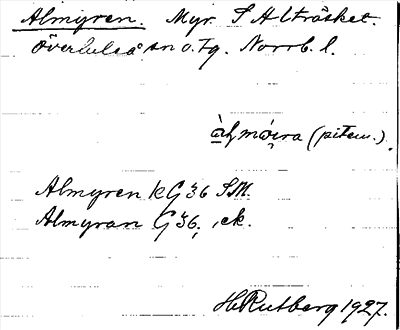 Almyren. Myr. S Alträsket.
Överluleå sn o. Tg. Norrb. l.
(pitem.).
Almyren kG 36 SM.
Almyran G 36, ek.
H Rutberg 1927.